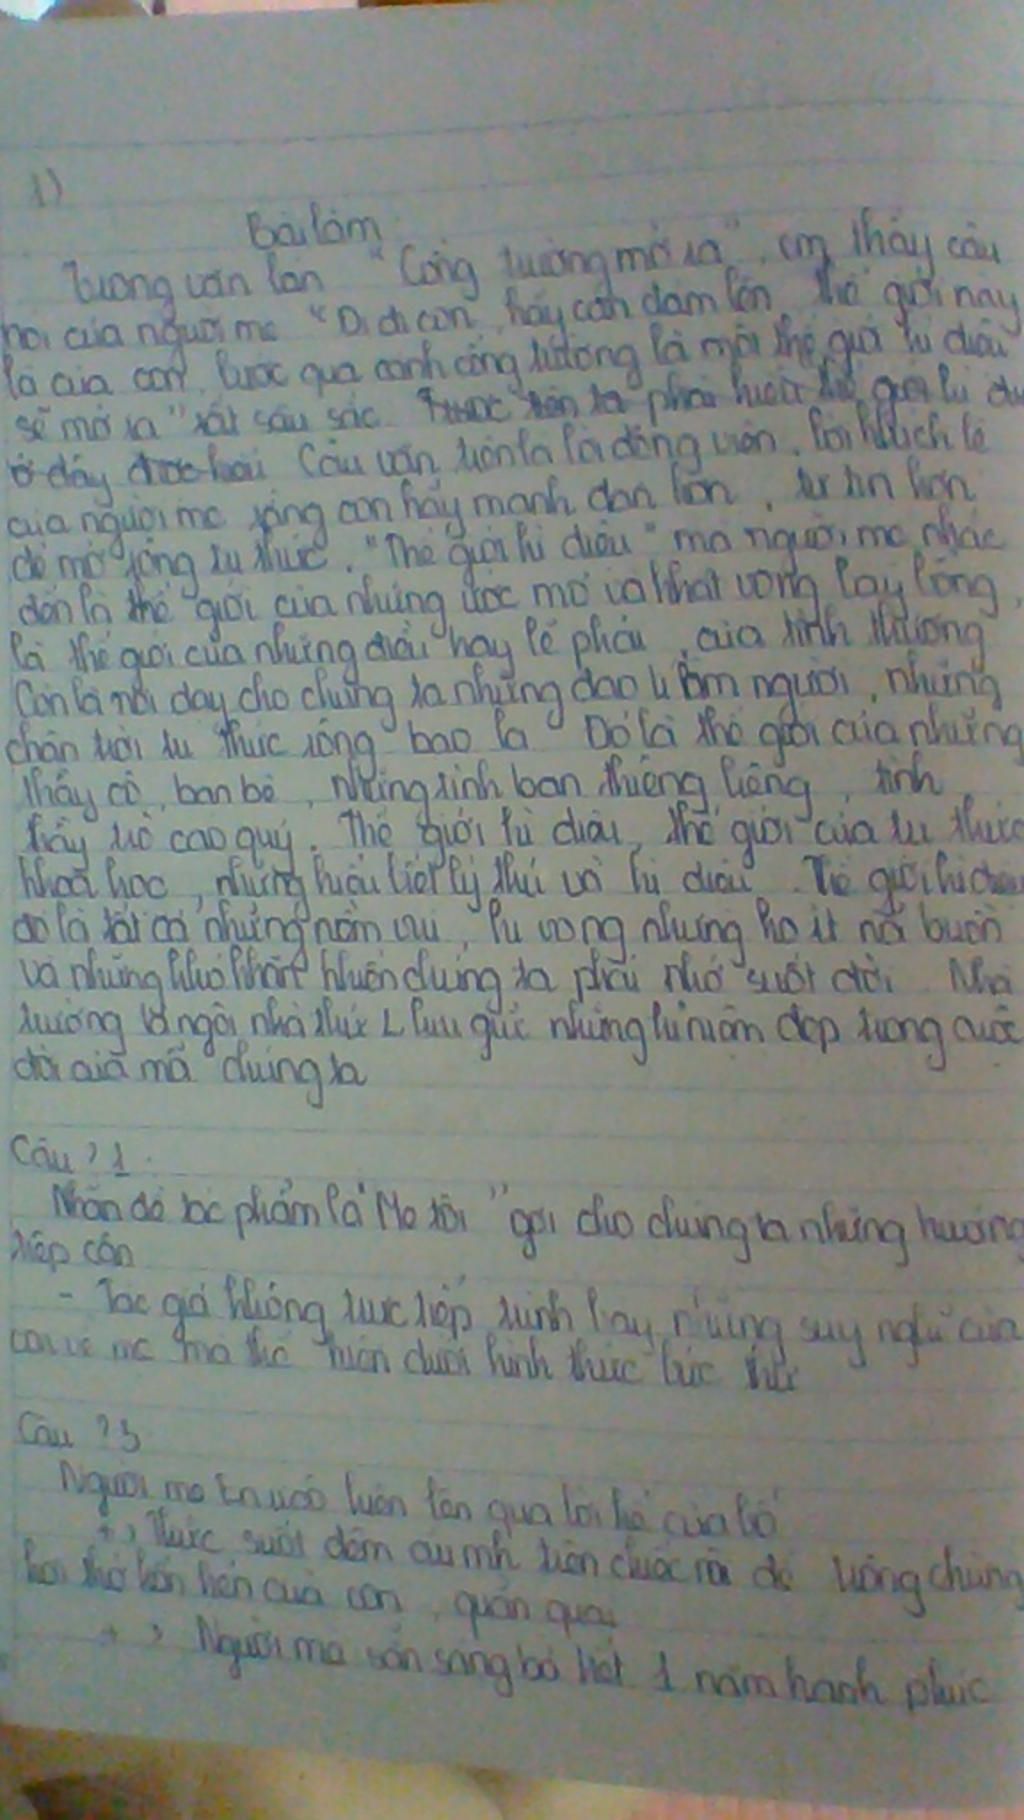 1)
Bài làm
Trong văn bản "Cổng trường mở ra", em thấy câu
nói của người mẹ "Đi đi con, hãy can đảm lên thế giới này
là của con bước qua cánh cổng trường là một thế giới kì diệu
sẽ mở ra" rất sâu sắc. Trước tiên ta phải hiểu thế giới kì
ở đây được hiểu Câu văn trên là lời động viên, lời khích lệ
của người mẹ rằng con hãy mạnh dạn lên, tự tin hơn
để mở rộng tri thức. "Thế giới kì diệu" mà người mẹ nhắc
đến là thế giới của những ước mơ và khát vọng bay bổng,
là thế giới của những điều hay lẽ phải, của tình thương
Còn là nơi dạy cho chúng ta những đạo lí làm người, những
chân trời tri thức rộng bao la Đó là thế giới của những
thầy cô, bạn bè, những tình bạn thiêng liêng, tình
thầy trò cao quý. Thế giới kì diệu, thế giới của tri thức
khoa học, những hiểu biết lý thú và kì diệu. Thế giới kì diệu
đó là tất cả những niềm vui, hi vọng nhưng ko ít nỗi buồn
và những khó khăn khiến chúng ta phải nhớ suốt đời. Nhà
trường là ngôi nhà thứ 2 lưu giữ những kỉ niệm đẹp trong cuộc
đời của mỗi chúng ta
Câu ? 1
Nhan đề tác phẩm là "Mẹ tôi" gợi cho chúng ta những hướng
tiếp cận
- Tác giả không trực tiếp trình bày những suy nghĩ của
con về mẹ mà thể hiện dưới hình thức bức thư
Câu ? 3
Người mẹ En ri cô luôn lên qua lời kể của bố
+, Thức suốt đêm cúi mình trên chiếc nôi để trông chừng
hơi thở hổn hển của con, quằn quại
+, Người mẹ sẵn sàng bỏ hết 1 năm hạnh phúc